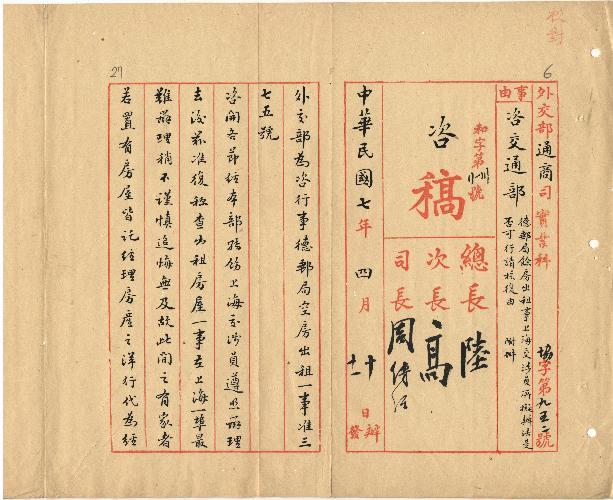 校對
6
外交部通商司實業科 協字第九五二號
事由
咨交通部
德郵局餘房出租事上海交涉員所擬辦法是
否可行請核復由 附辦
和字第 號
咨
稿
總長 陸
次長 高
司長 周傳經
中華民國七年四月
十 十一
日 辦 發
27
外交部為咨行事德郵局空房出租一事准三
七五號
咨開各節經本部轉飭上海交涉員遵照辦理
去後茲准復稱查出租房屋一事在上海一埠最
難辦理稍不謹慎追悔無及故此間之有家者
若置有房屋皆託經理房產之洋行代為經